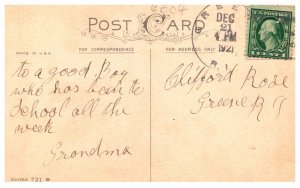 6004
POST CARD
MADE IN U.S.A.
FOR CORRESPONDENCE
FOR ADDRESS ONLY
GREENE
DEC
21
4 PM
1921
R.I.
U.S. POSTAGE
to a good Boy
who has been to
School all the
week
Grandma
Clifford Rose
Greene R I
731